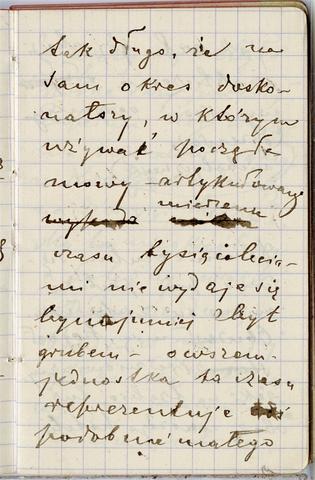 tak długo, że na
sam okres dosko-
nalszy, w którym
używać począł
mowy artykułowanej
mierzenie
czasu tysiącolecia-
mi nie wydaje się
bynajmniej zbyt
grubem – owszem –
jednostka ta czasu
reprezentuje
podobnie małego